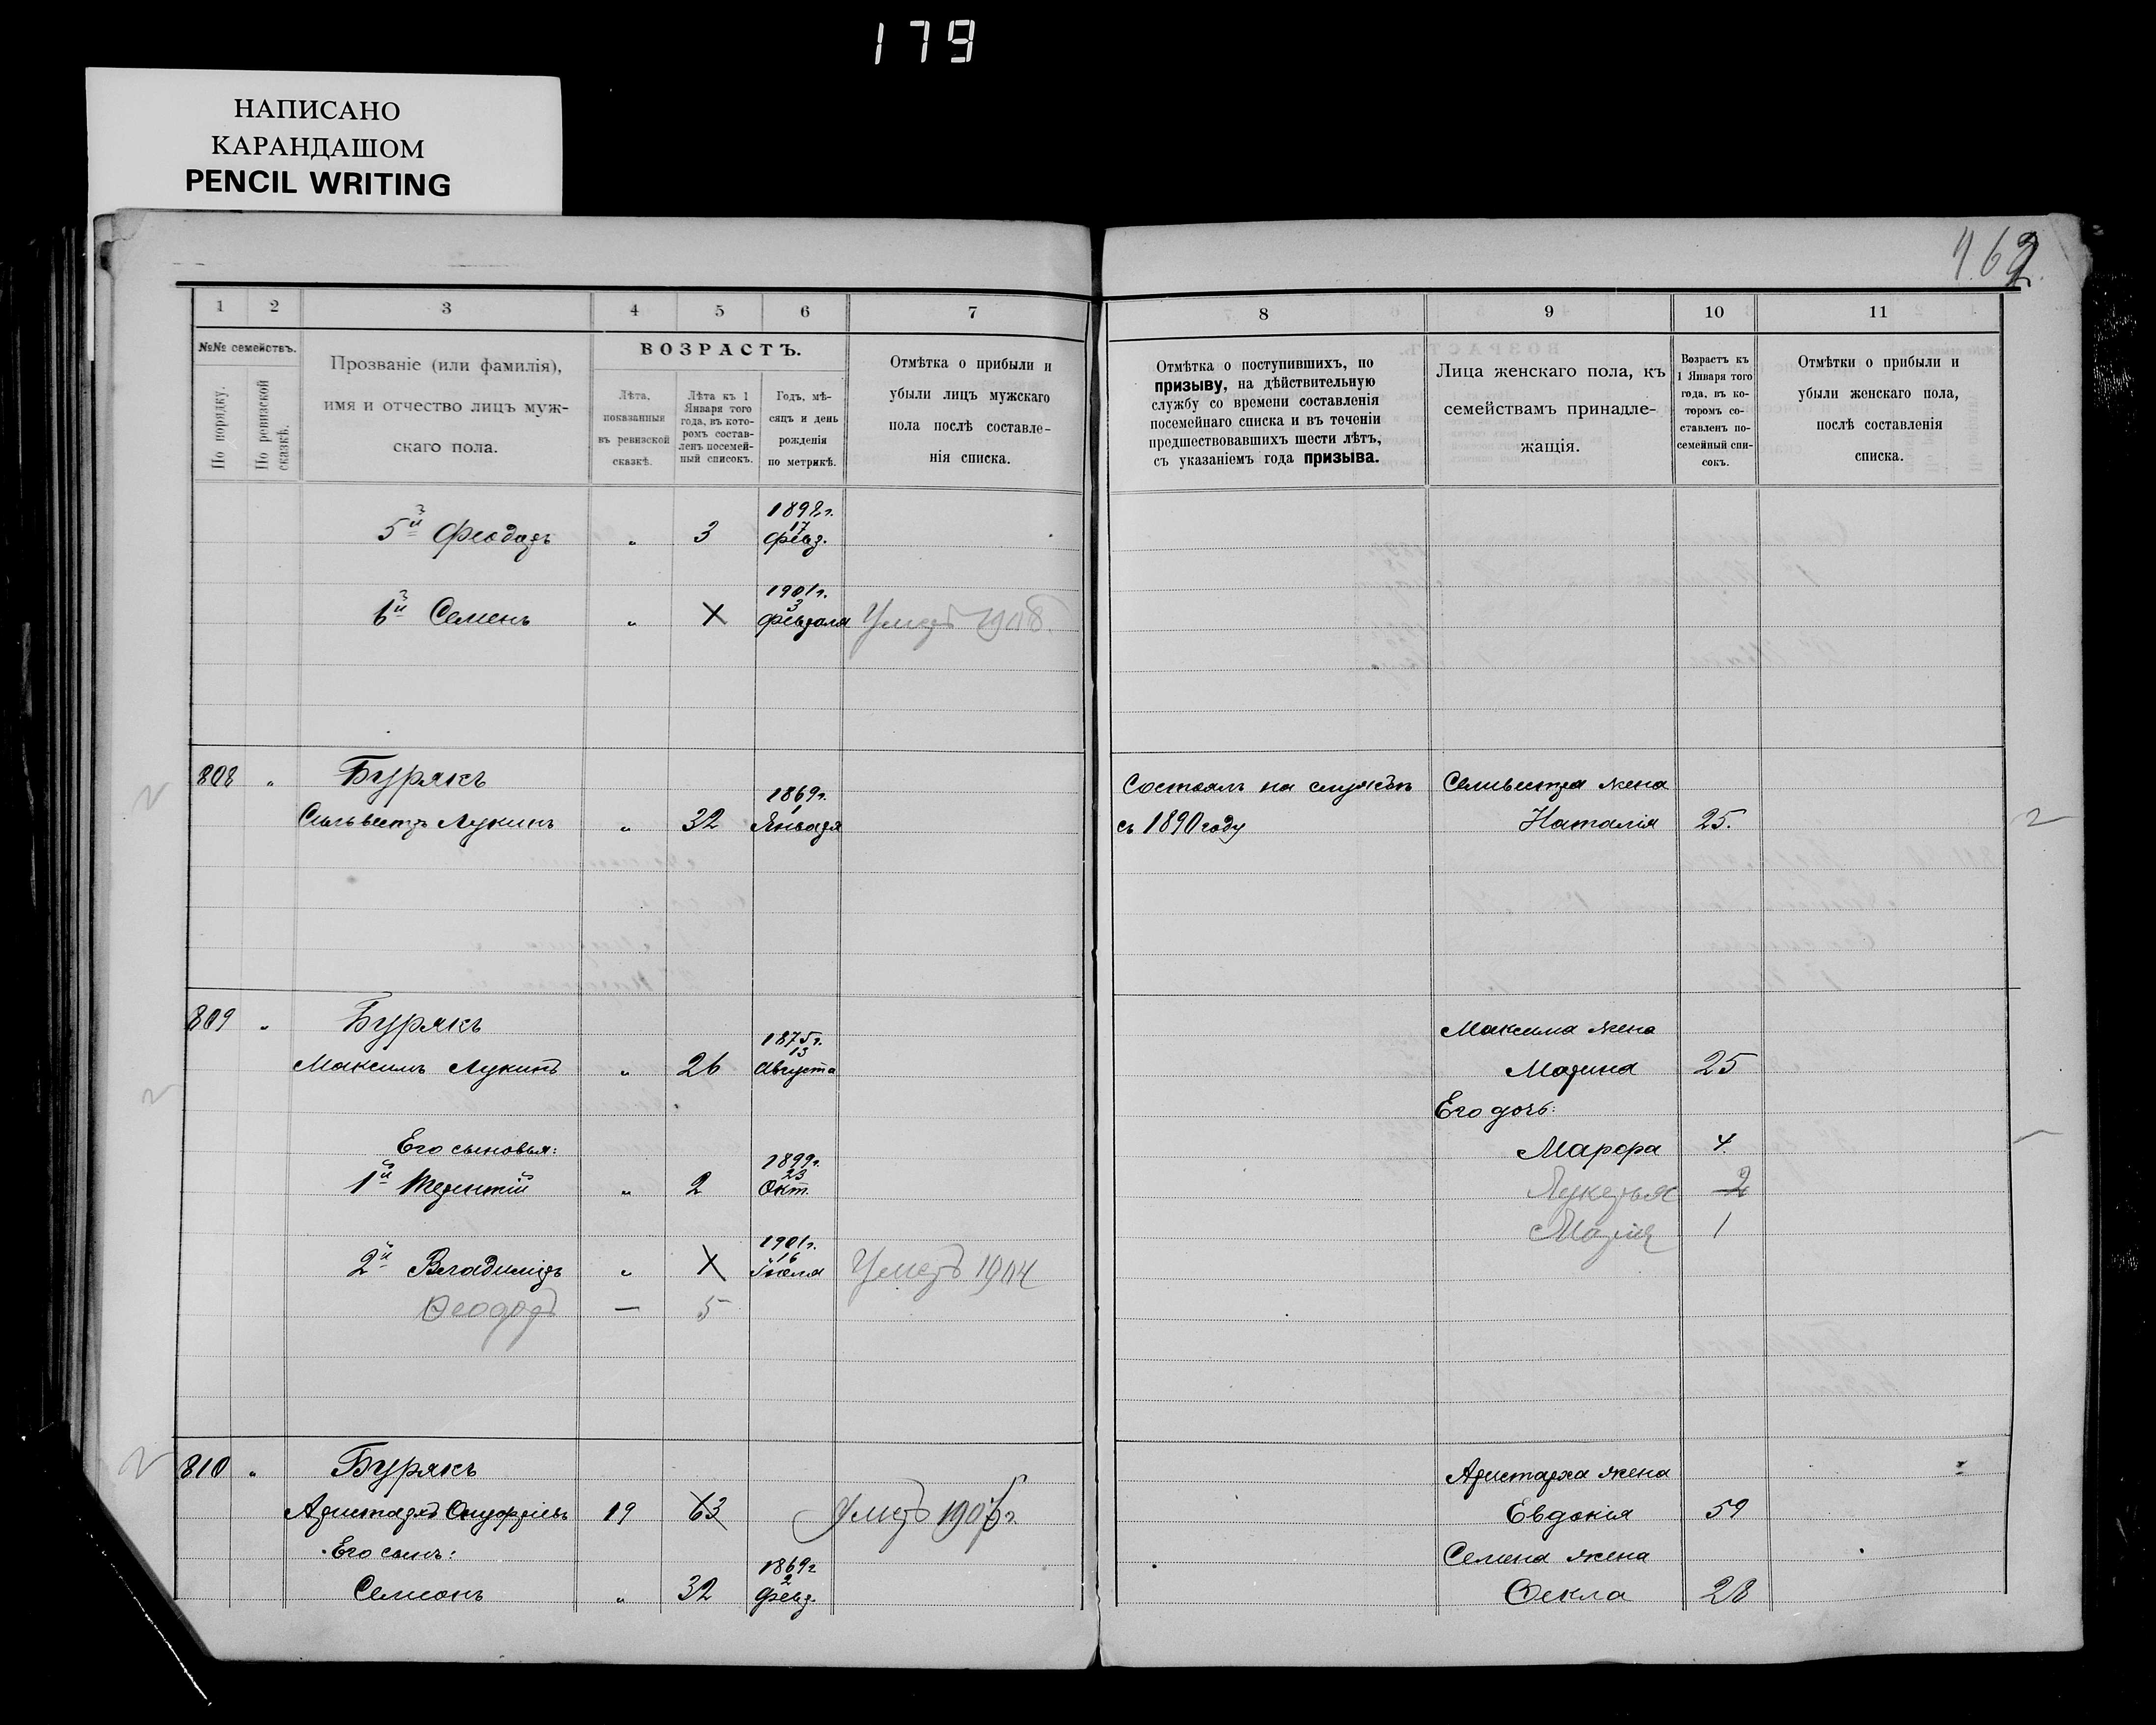 179
НАПИСАНО
КАРАНДАШОМ
PENCIL WRITING
162.
1 2 3 4 5 6 7
№№ семействъ.
По порядку.
По ревизской сказкѣ.
Прозваніе (или фамилія),
имя и отчество лицъ муж-
скаго пола.
ВОЗРАСТЪ.
Лѣта,
показанныя
въ ревизской
сказкѣ.
Лѣта къ 1
Января того
года, въ кото-
ромъ состав-
ленъ посемей-
ный списокъ.
Годъ, мѣ-
сяцъ и день
рожденія
по метрикѣ.
Отмѣтка о прибыли и
убыли лицъ мужскаго
пола послѣ составле-
нія списка.
8 9 10 11
Отмѣтка о поступившихъ, по
призыву, на дѣйствительную
службу со времени составленія
посемейнаго списка и въ теченіи
предшествовавшихъ шести лѣтъ,
съ указаніемъ года призыва.
Лица женскаго пола, къ
семействамъ принадле-
жащія.
Возрастъ къ
1 Января того
года, въ ко-
торомъ со-
ставленъ по-
семейный спи-
сокъ.
Отмѣтки о прибыли и
убыли женскаго пола,
послѣ составленія
списка.
1898 г.
17
5й Феодоръ " 3 Февр.
1901 г.
3
6й Семенъ " X Февраля Умеръ 1908.
808 " Бурякъ
1869 г.
1
Сильвестръ Лукинъ " 32 Января
Состоялъ на службѣ Сильвестра жена
съ 1890 году Наталія 25.
809 " Бурякъ
1875 г.
13
Максимъ Лукинъ " 26 Августа
Его сыновья:
1899 г.
23
1й Терентій " 2 Окт.
1901 г.
16
2й Владиміръ " X Іюля Умеръ 1904
Феодоръ — 5
Максима жена
Марина 25
Его дочь:
Марфа 4.
Лукерья 2
Марія 1
810 " Бурякъ
Аристархъ Онуфріевъ 19 63 Умеръ 1907 г.
Его сынъ:
1869 г
2
Семионъ " 32 Февр.
Аристарха жена
Евдокія 59
Семена жена
Фекла 28